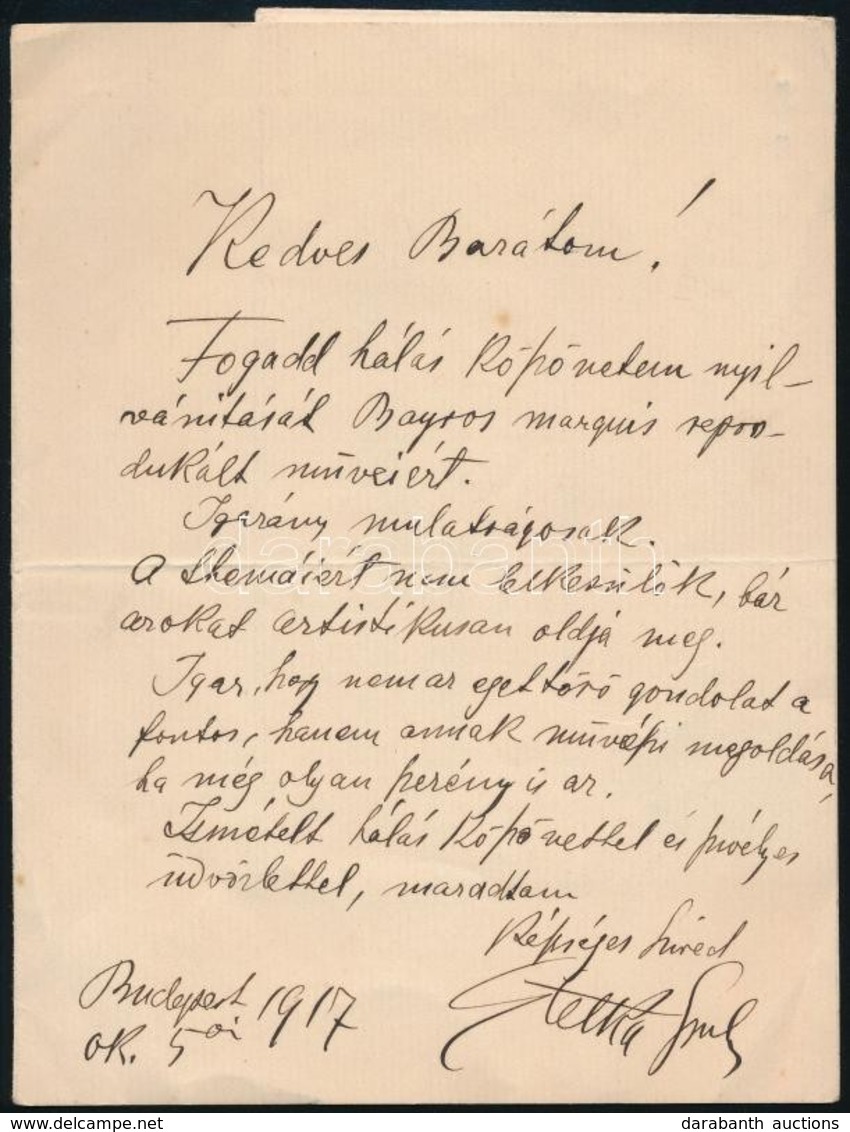 Kedves Barátom!
Fogadd hálás köszönetem nyil-
vánitását Bayros marquis repro-
dukált müveiért.
Igazány mulatságosak.
A themáiért nem lelkesülök, bár
azokat artistikusan oldja meg.
Igaz, hogy nem az egettörö gondolat a
fontos, hanem annak müvészi megoldása,
ha még olyan szerény is az.
Ismételt hálás köszönettel és szivélyes
üdvözlettel, maradtam
Készséges hived
Telka
Budapest 1917
ok. 5 ői
darabanth
delcampe.net
darabanth auctions